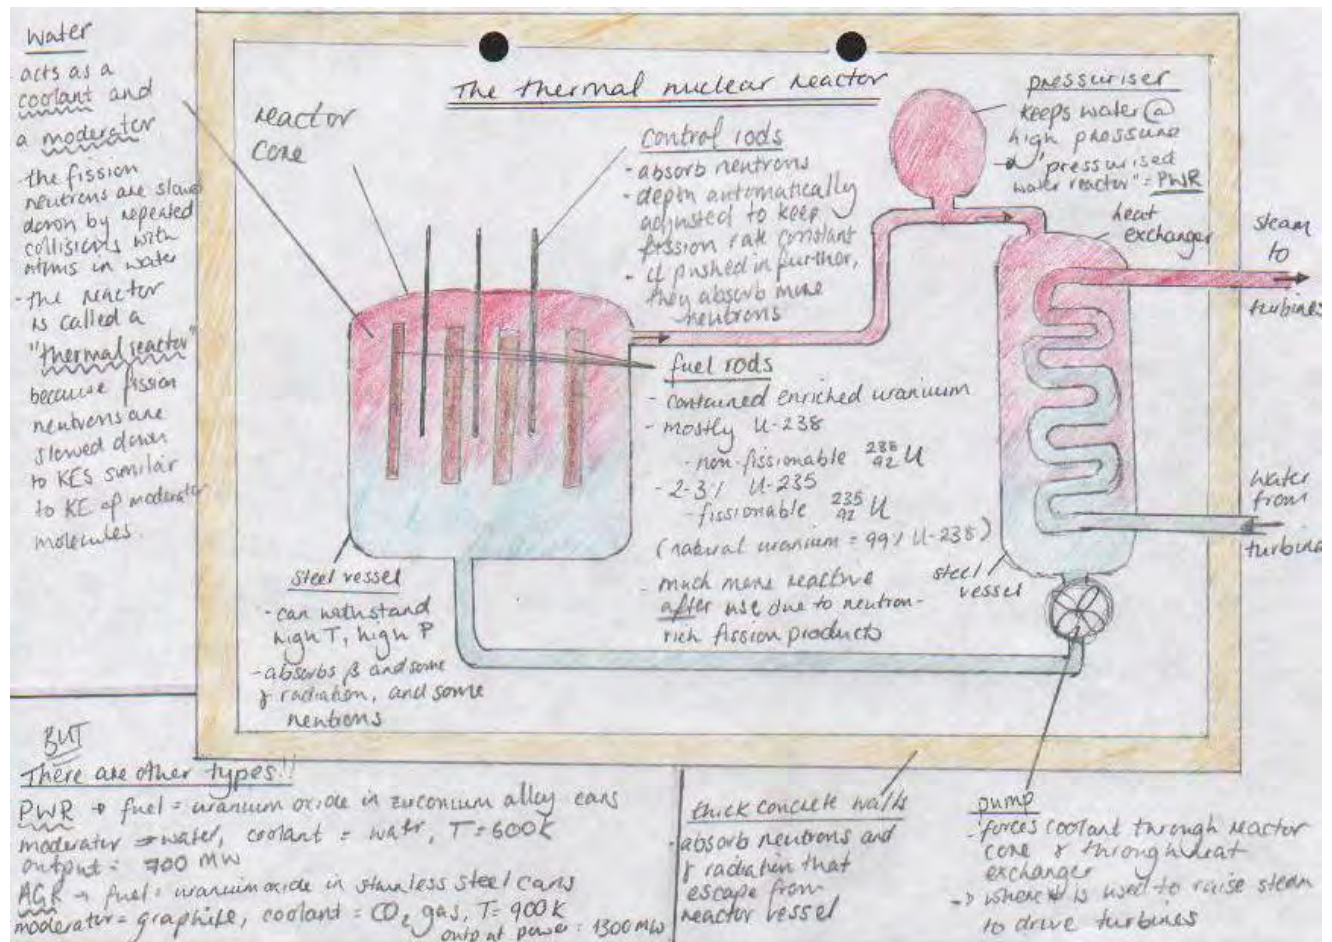 The thermal nuclear reactor
water
acts as a
coolant and
a moderator
- the fission
neutrons are slowed
down by repeated
collisions with
atoms in water
- the reactor
is called a
"thermal reactor"
because fission
neutrons are
slowed down
to KES similar
to KE of moderator
molecules.
reactor
core
control rods
- absorb neutrons
- depth automatically
adjusted to keep
fission rate constant
- if pushed in further,
they absorb more
neutrons
pressuriser
keeps water @
high pressure
→ "pressurised
water reactor" = PWR
heat
exchanger
steam
to
turbines
fuel rods
- contained enriched uranium
- mostly U-238
- non-fissionable 238 92 U
- 2-3% U-235
- fissionable 235 92 U
(natural uranium = 99% U-238)
- much more reactive
after use due to neutron-
rich fission products
water
from
turbine
steel
vessel
steel vessel
- can withstand
high T, high P
- absorbs β and some
γ radiation, and some
neutrons
BUT
There are other types!!
PWR → fuel = uranium oxide in zirconium alloy cans
moderator = water, coolant = water, T = 600K
output = 700 MW
AGR → fuel = uranium oxide in stainless steel cans
moderator = graphite, coolant = CO2 gas, T = 900K
output power = 1300 MW
thick concrete walls
- absorb neutrons and
γ radiation that
escape from
reactor vessel
pump
- forces coolant through reactor
core & through heat
exchanger
→ where is used to raise steam
to drive turbines